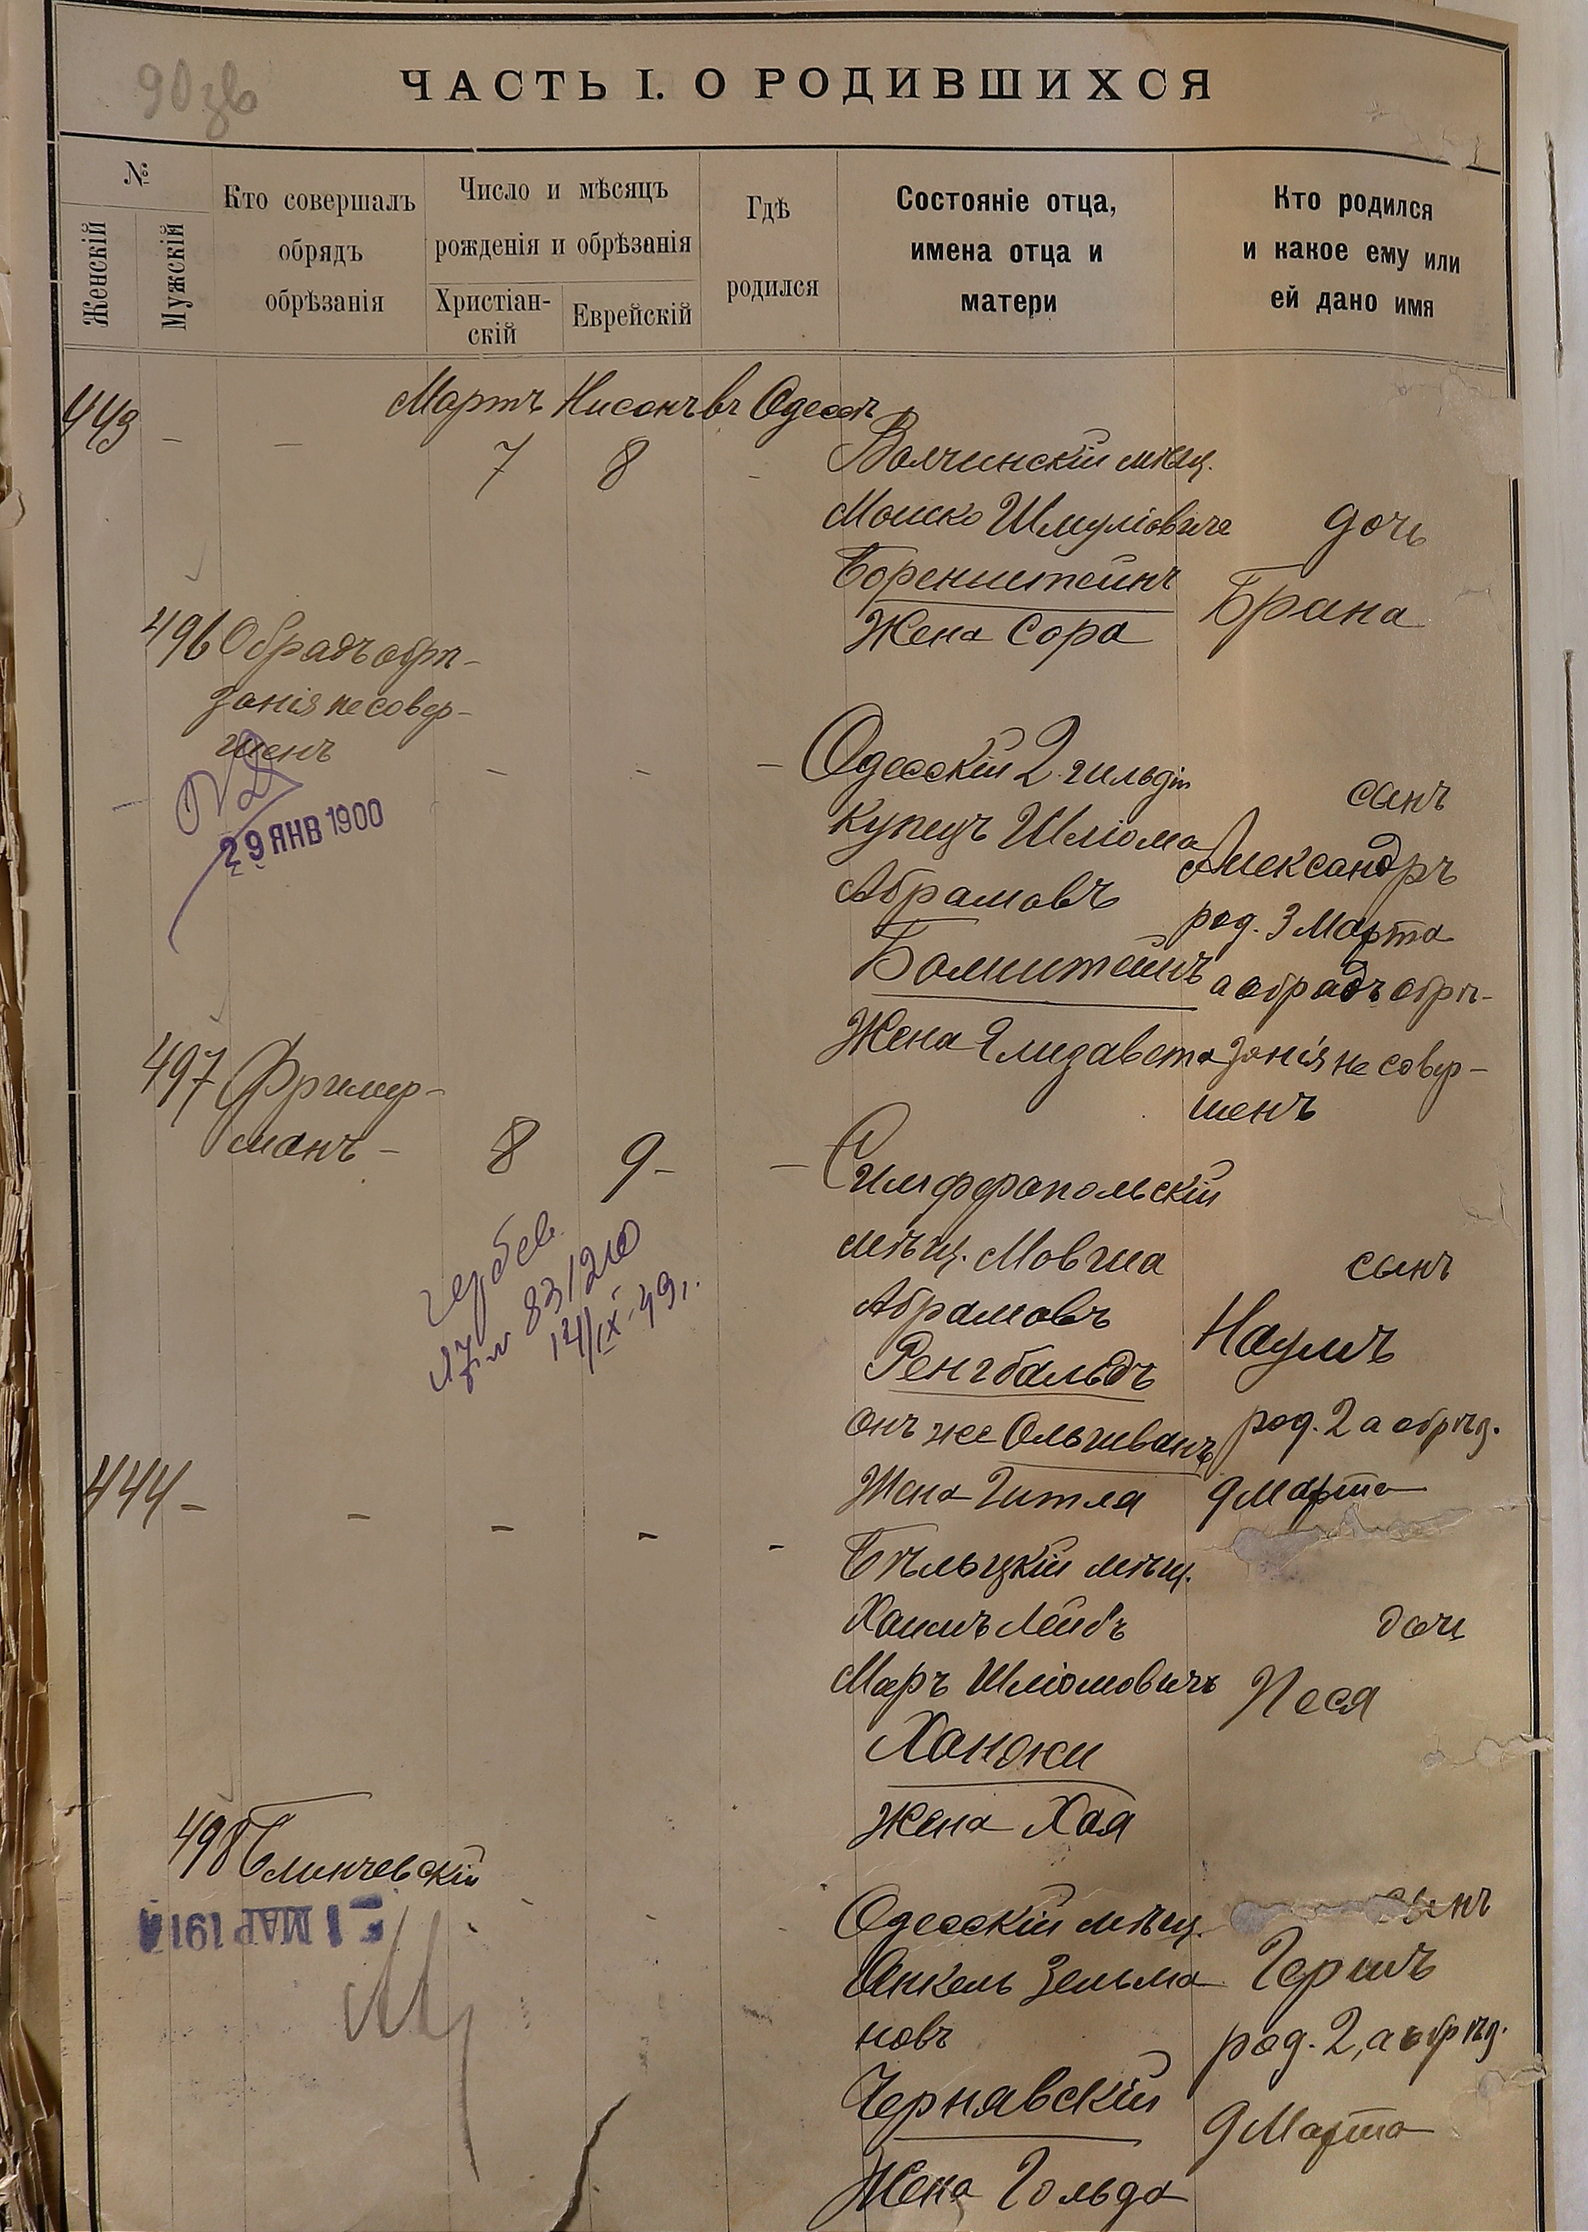 90 зв
ЧАСТЬ I. О РОДИВШИХСЯ
№
Женскій
Мужскій
Кто совершалъ
обрядъ
обрѣзанія
Число и мѣсяцъ
рожденія и обрѣзанія
Христіан-
скій
Еврейскій
Гдѣ
родился
Состояніе отца,
имена отца и
матери
Кто родился
и какое ему или
ей дано имя
443 – –
Мартъ Нисонъ въ Одессѣ
7 8 –
Волчинскій мѣщ.
Мошко Шмуліовичъ
Боренштейнъ
Жена Сора
дочь
Брана
496 Обрядъ обрѣ-
занія не совер-
шенъ
29 ЯНВ 1900
– – –
Одесскій 2 гильдіи
купецъ Шліома
Абрамовъ
Бомштейнъ
Жена Елизавета
сынъ
Александръ
род. 3 Марта
а обрядъ обрѣ-
занія не совер-
шенъ
497 Фример-
манъ –
8 9 – –
83/210
14/IX-49 г.
Симферопольскій
мѣщ. Мовша
Абрамовъ
Ренгбальдъ
онъ же Ольшванъ
Жена Гитля
сынъ
Наумъ
род. 2 а обрѣз.
9 Марта
444 – – – – –
Бѣльцкій мѣщ.
Хаимъ Лейбъ
Меръ Шліомовичъ
Ханоки
Жена Хая
дочь
Песя
498 Блинчевскій
1 МАР 191
– – –
Одесскій мѣщ.
Янкель Зельма
новъ
Чернявскій
Жена Гольда
сынъ
Гершъ
род. 2, а обрѣз.
9 Марта